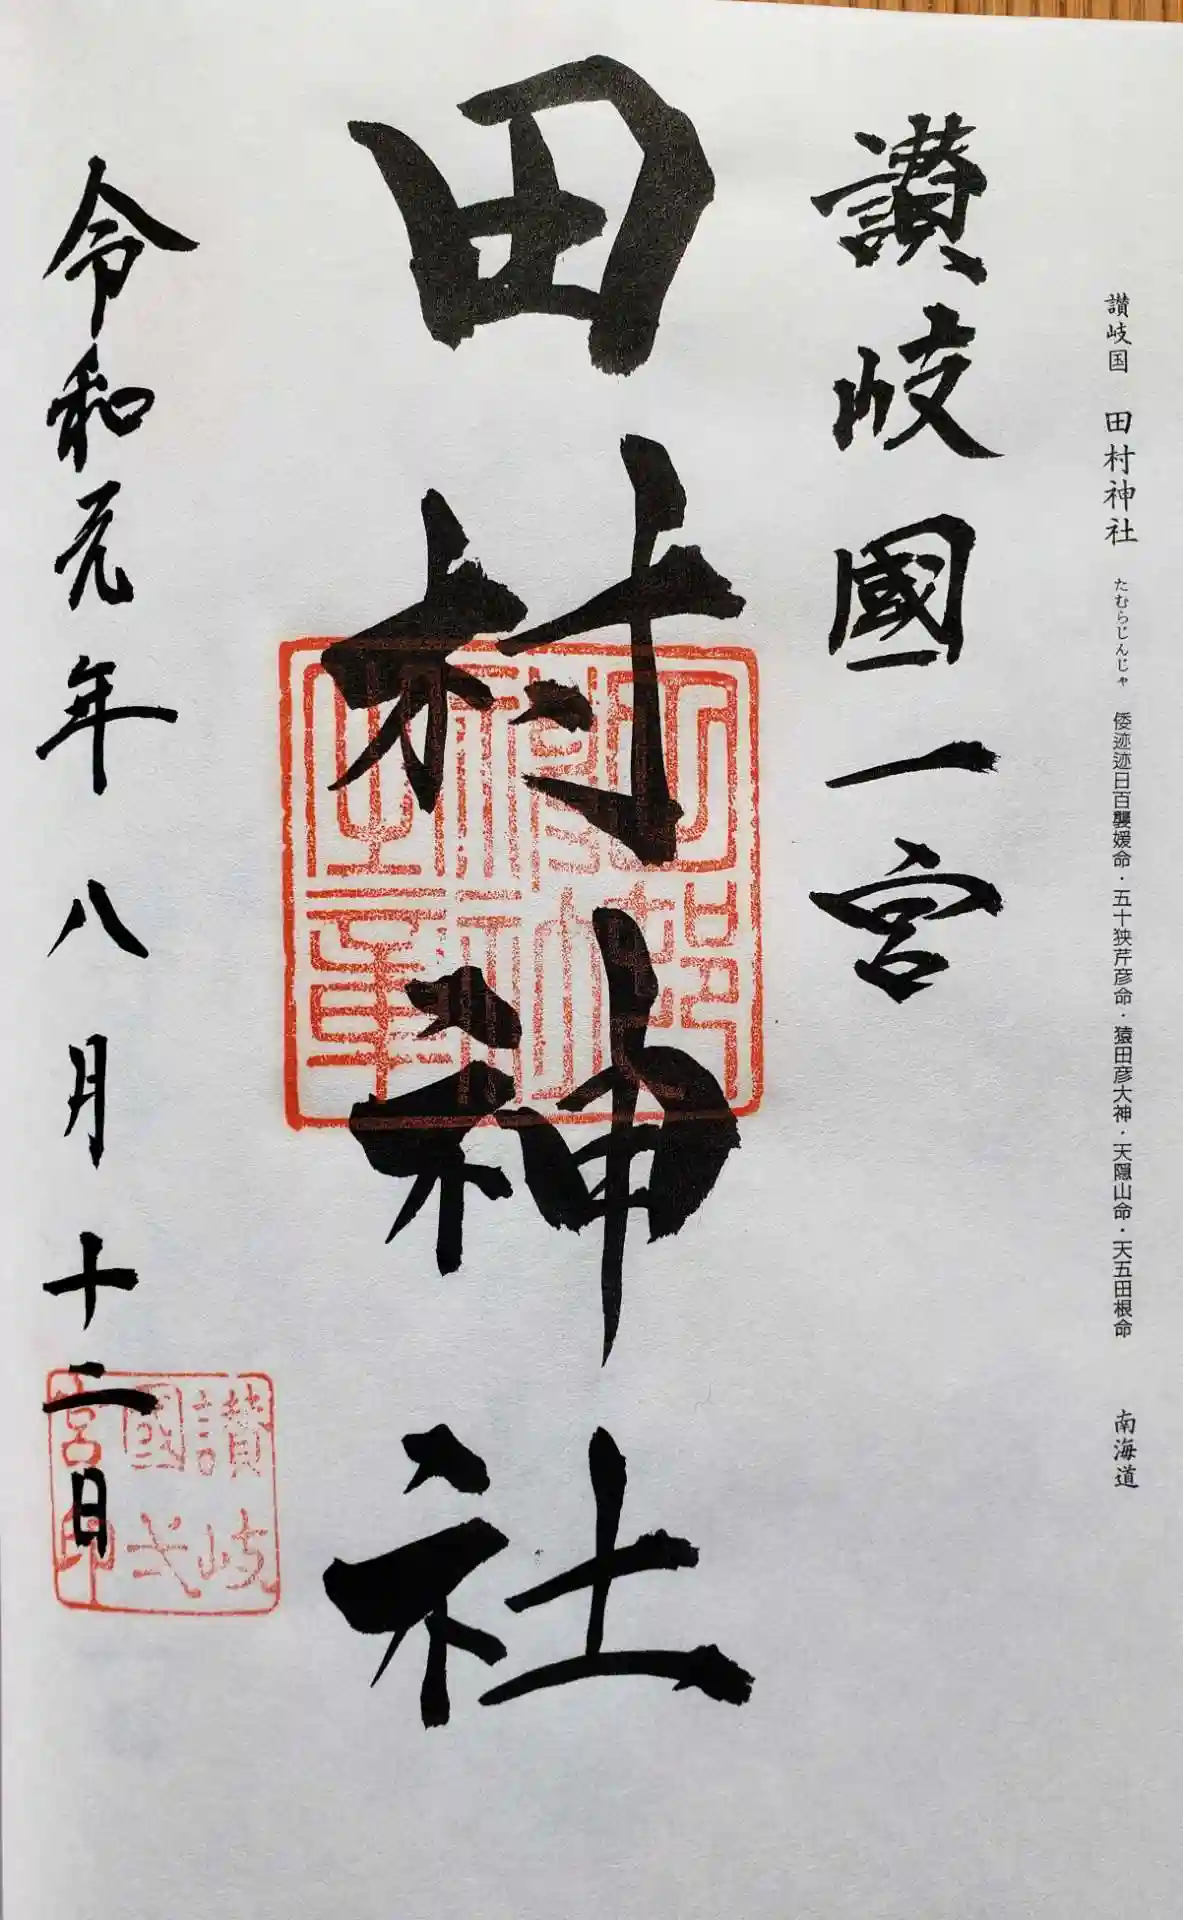 讃岐国 田村神社 たむらじんじゃ 倭迹迹日百襲媛命・五十狭芹彦命・猿田彦大神・天隠山命・天五田根命 南海道
讃岐國一宮
田村神社
令和元年八月十二日
讃岐
國弌
宮印